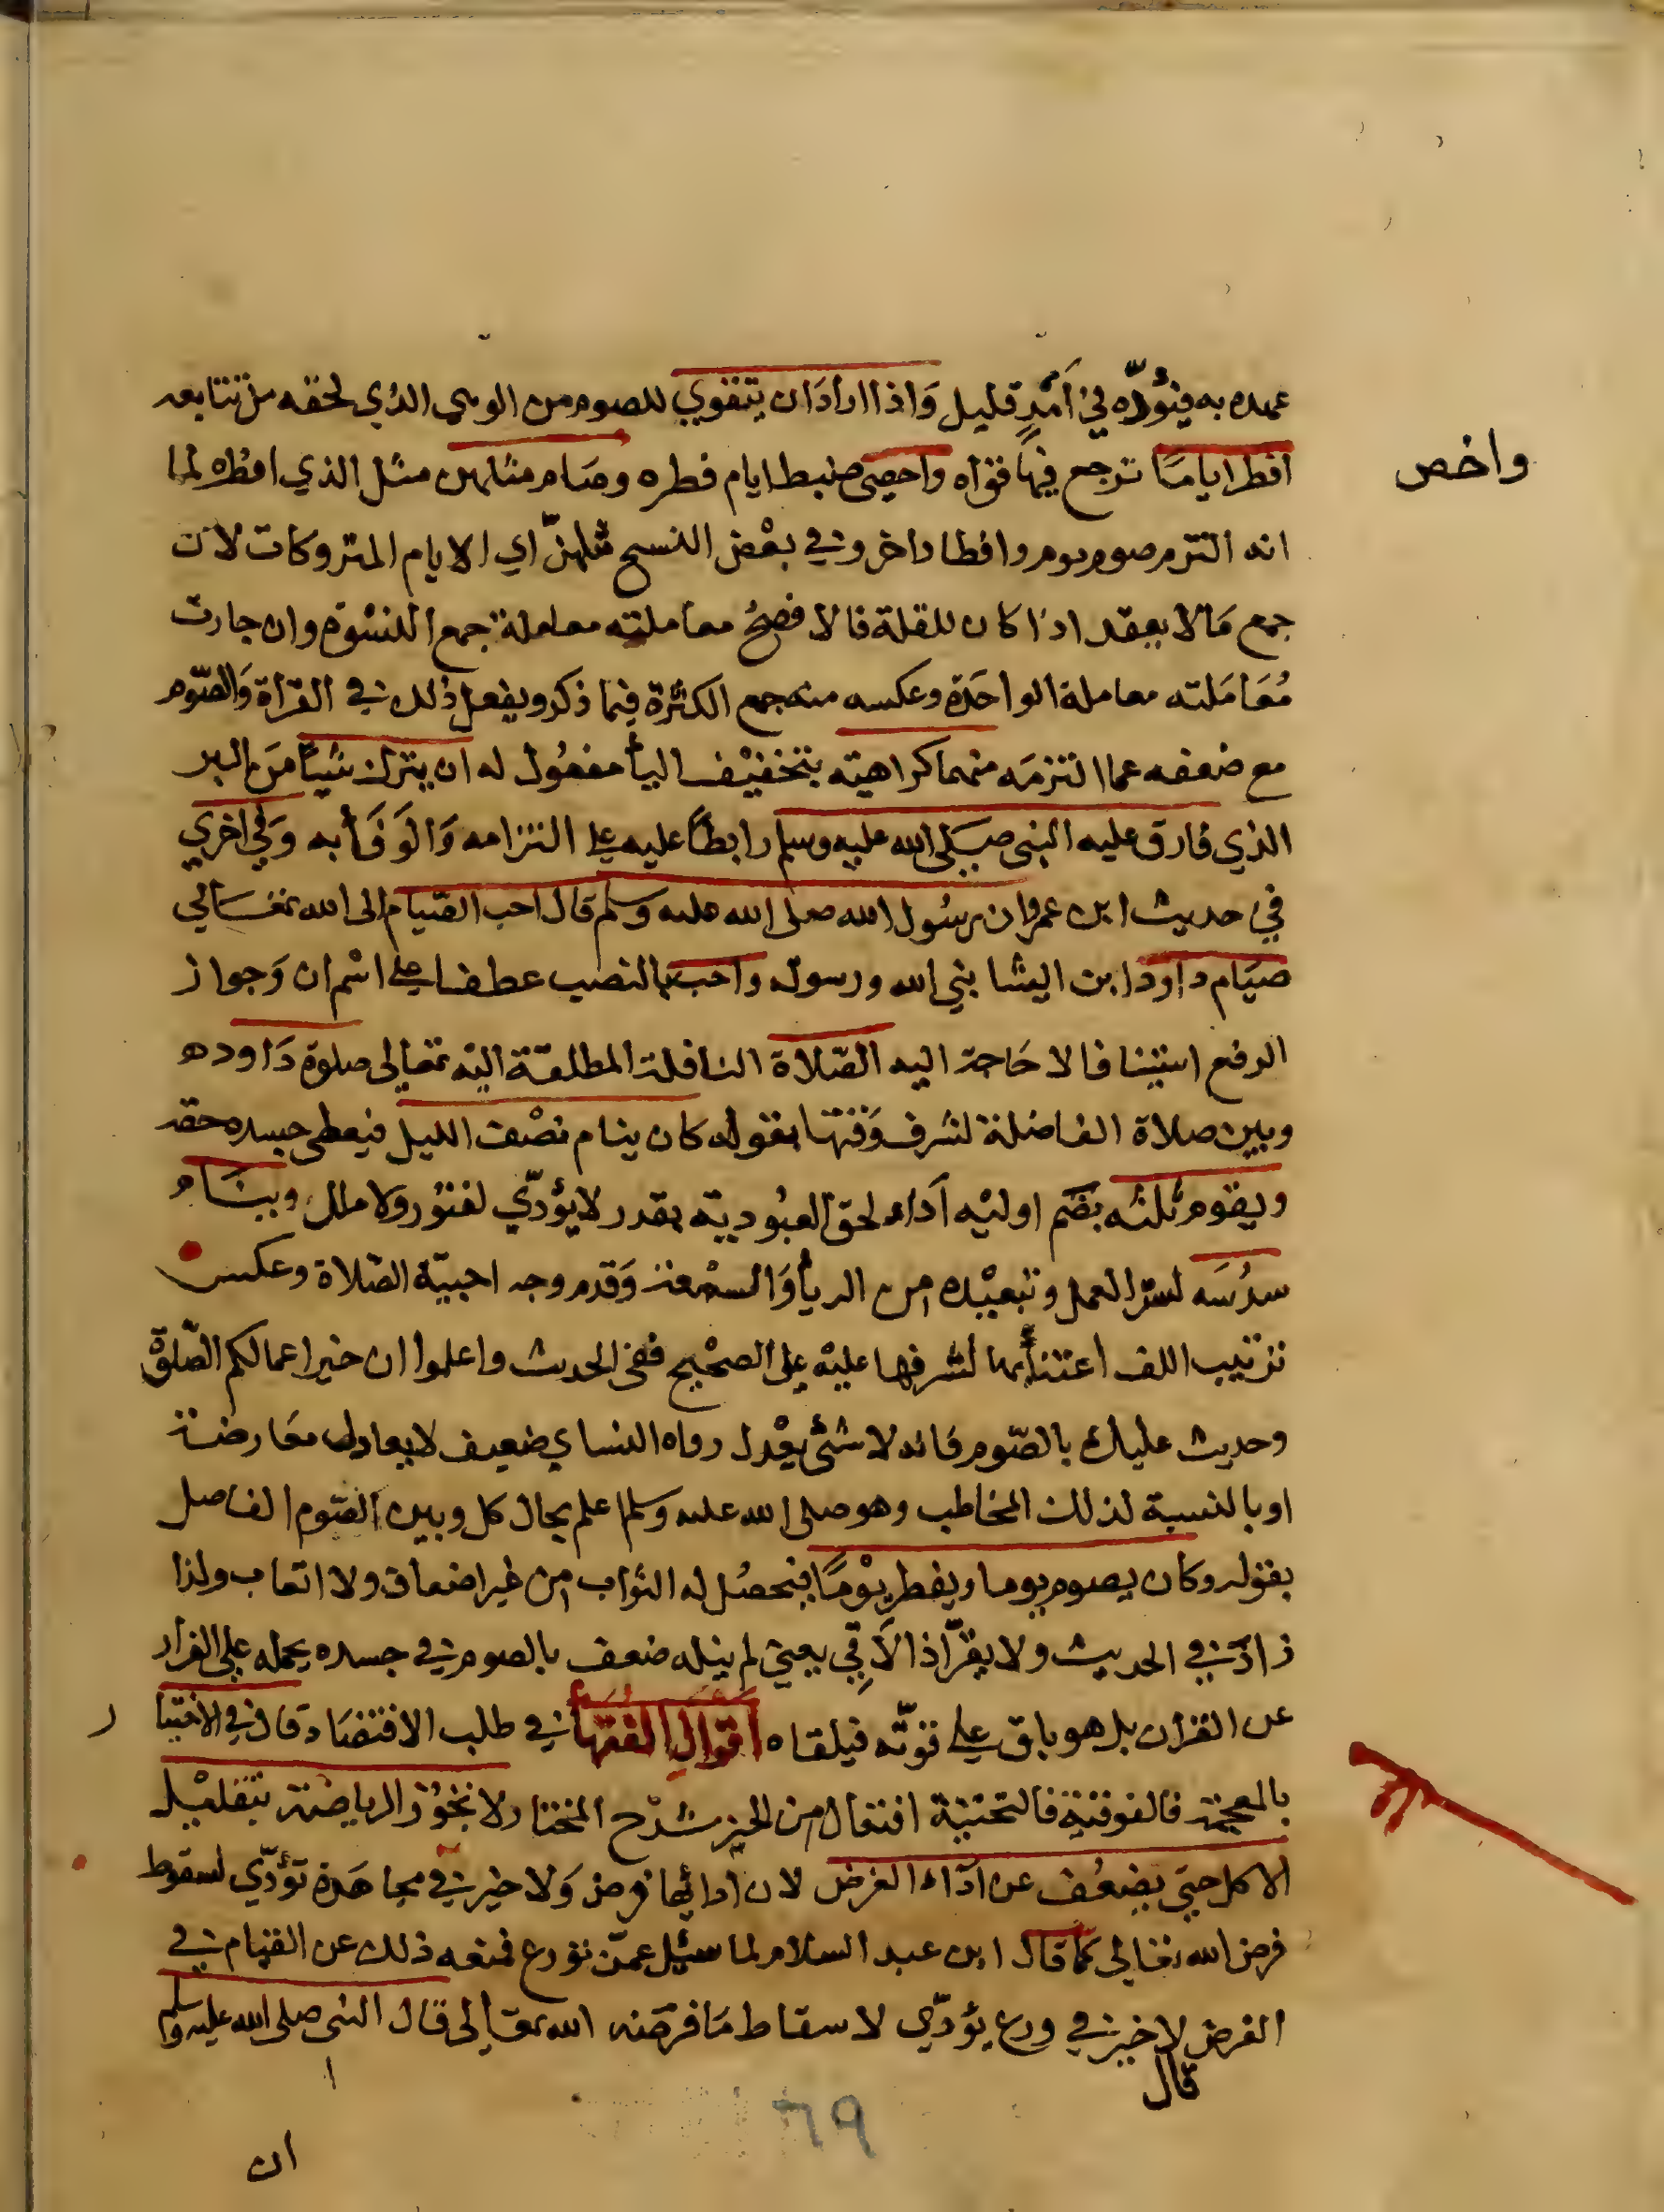 عهده به فيؤدّه في أمدٍ قليل وَاذا ارادَ ان يتقوي للصوم من الوهي الذي لحقه من تتابعه
افطر ايامًا ترجع فيها قواه واحصى ضبط ايام فطره وصَام مثلهن مثل الذي افطره لما
واخص
انه التزم صوم يوم وافطار اخر وفي بعْض النسح مثلهنّ اي الايام المتروكات لان
جمع مَالا يعقد اذا كان للقلة فالافصحُ معاملته معاملة جمع النسْوة وان جازت
مُعَامَلته معاملة الواحَدة وعكسه منه جمع الكثرة فيما ذكر ويفعل ذلك في القرأة وَالصّوم
مع ضعفه عما التزمَه منهما كراهيته بتخفيْف اليأ مفعُول له ان يترك شيأً مَن البر
الذي فارق عليه النبي صَلى الله عليه وسلم رابطًا عليه على التزامه وَالوَفَأ به وَفي اخري
في حديث ابن عمر وان رسُول الله صلى الله عليه وسلم قال احب الصّيام الى الله تعَالي
صيَام داود ابن ايشا بني الله ورسوله واحب بالنصب عطفا على اسْم ان وَجواز
الرفع استينافا لا حَاجة اليه الصّلاة النافلة المطلقة اليه تعَالى صلوة دَاود ه
وبين صلاة الفاضلة لشرف وَقتها بقوله كان ينام نصْف الليل فيعطى جسده حقه
ويقوم ثلثه بضَم اوليْه اَداء لحق العبُودية بقدر لا يؤدّي لفتُور ولا ملل وينَام
سدُسَه لسرّ العمل وتبعيْده من الريأ وَالسمْعة وَقدم وجه احبيّة الصّلاة وعكس
ترتيب اللف اعتنأ بها لشرفها عليْه على الصحيْح ففى الحديث واعلموا ان خير اعمالكم الصّلوة
وحديث عليك بالصّوم فانه لا شئ يعْدل رواه النساي ضعيف لا يعادل معَارضة
او بالنسبة لذلك المخاطب وهو صلى الله عليه وسلم اعلم بحال كل وبين الصّوم الفاصل
بقوله وكان يصوم يوما ويفطر يوْمًا فيحصُل له الثواب من غير اضعاف ولا اتعاب ولذا
زادَ في الحديث ولا يفرّ اذا لاَقِي يعني لم ينله ضعف بالصوم في جسده يحمله على الفرار
عن القران بل هو باق على قوتّه فيلقاه اَقوَالِ الفُقهَأ في طلب الاقتصَاد قال في الاختيا ر
بالمعجمة فالفوقية فالتحتيّة افتعال من الخير شرْح المختار لا تجُوْز الرياضة بتقليْل
الاكل حتي يضعُف عن اَدَاء الفرض لان ادائها فرض وَلا خير في مجاهَدة تؤدّي لسقوط
فرض الله تعالى كما قال ابن عبد السلام لما سئِل عمّن تورع فمنعه ذلك عن القيام في
الفرض لا خير في ورع يؤدّي لاسقاط مَا فرضَه الله تعَالى قال النبي صلى الله عليه وسلم
قال
٦٩
ان